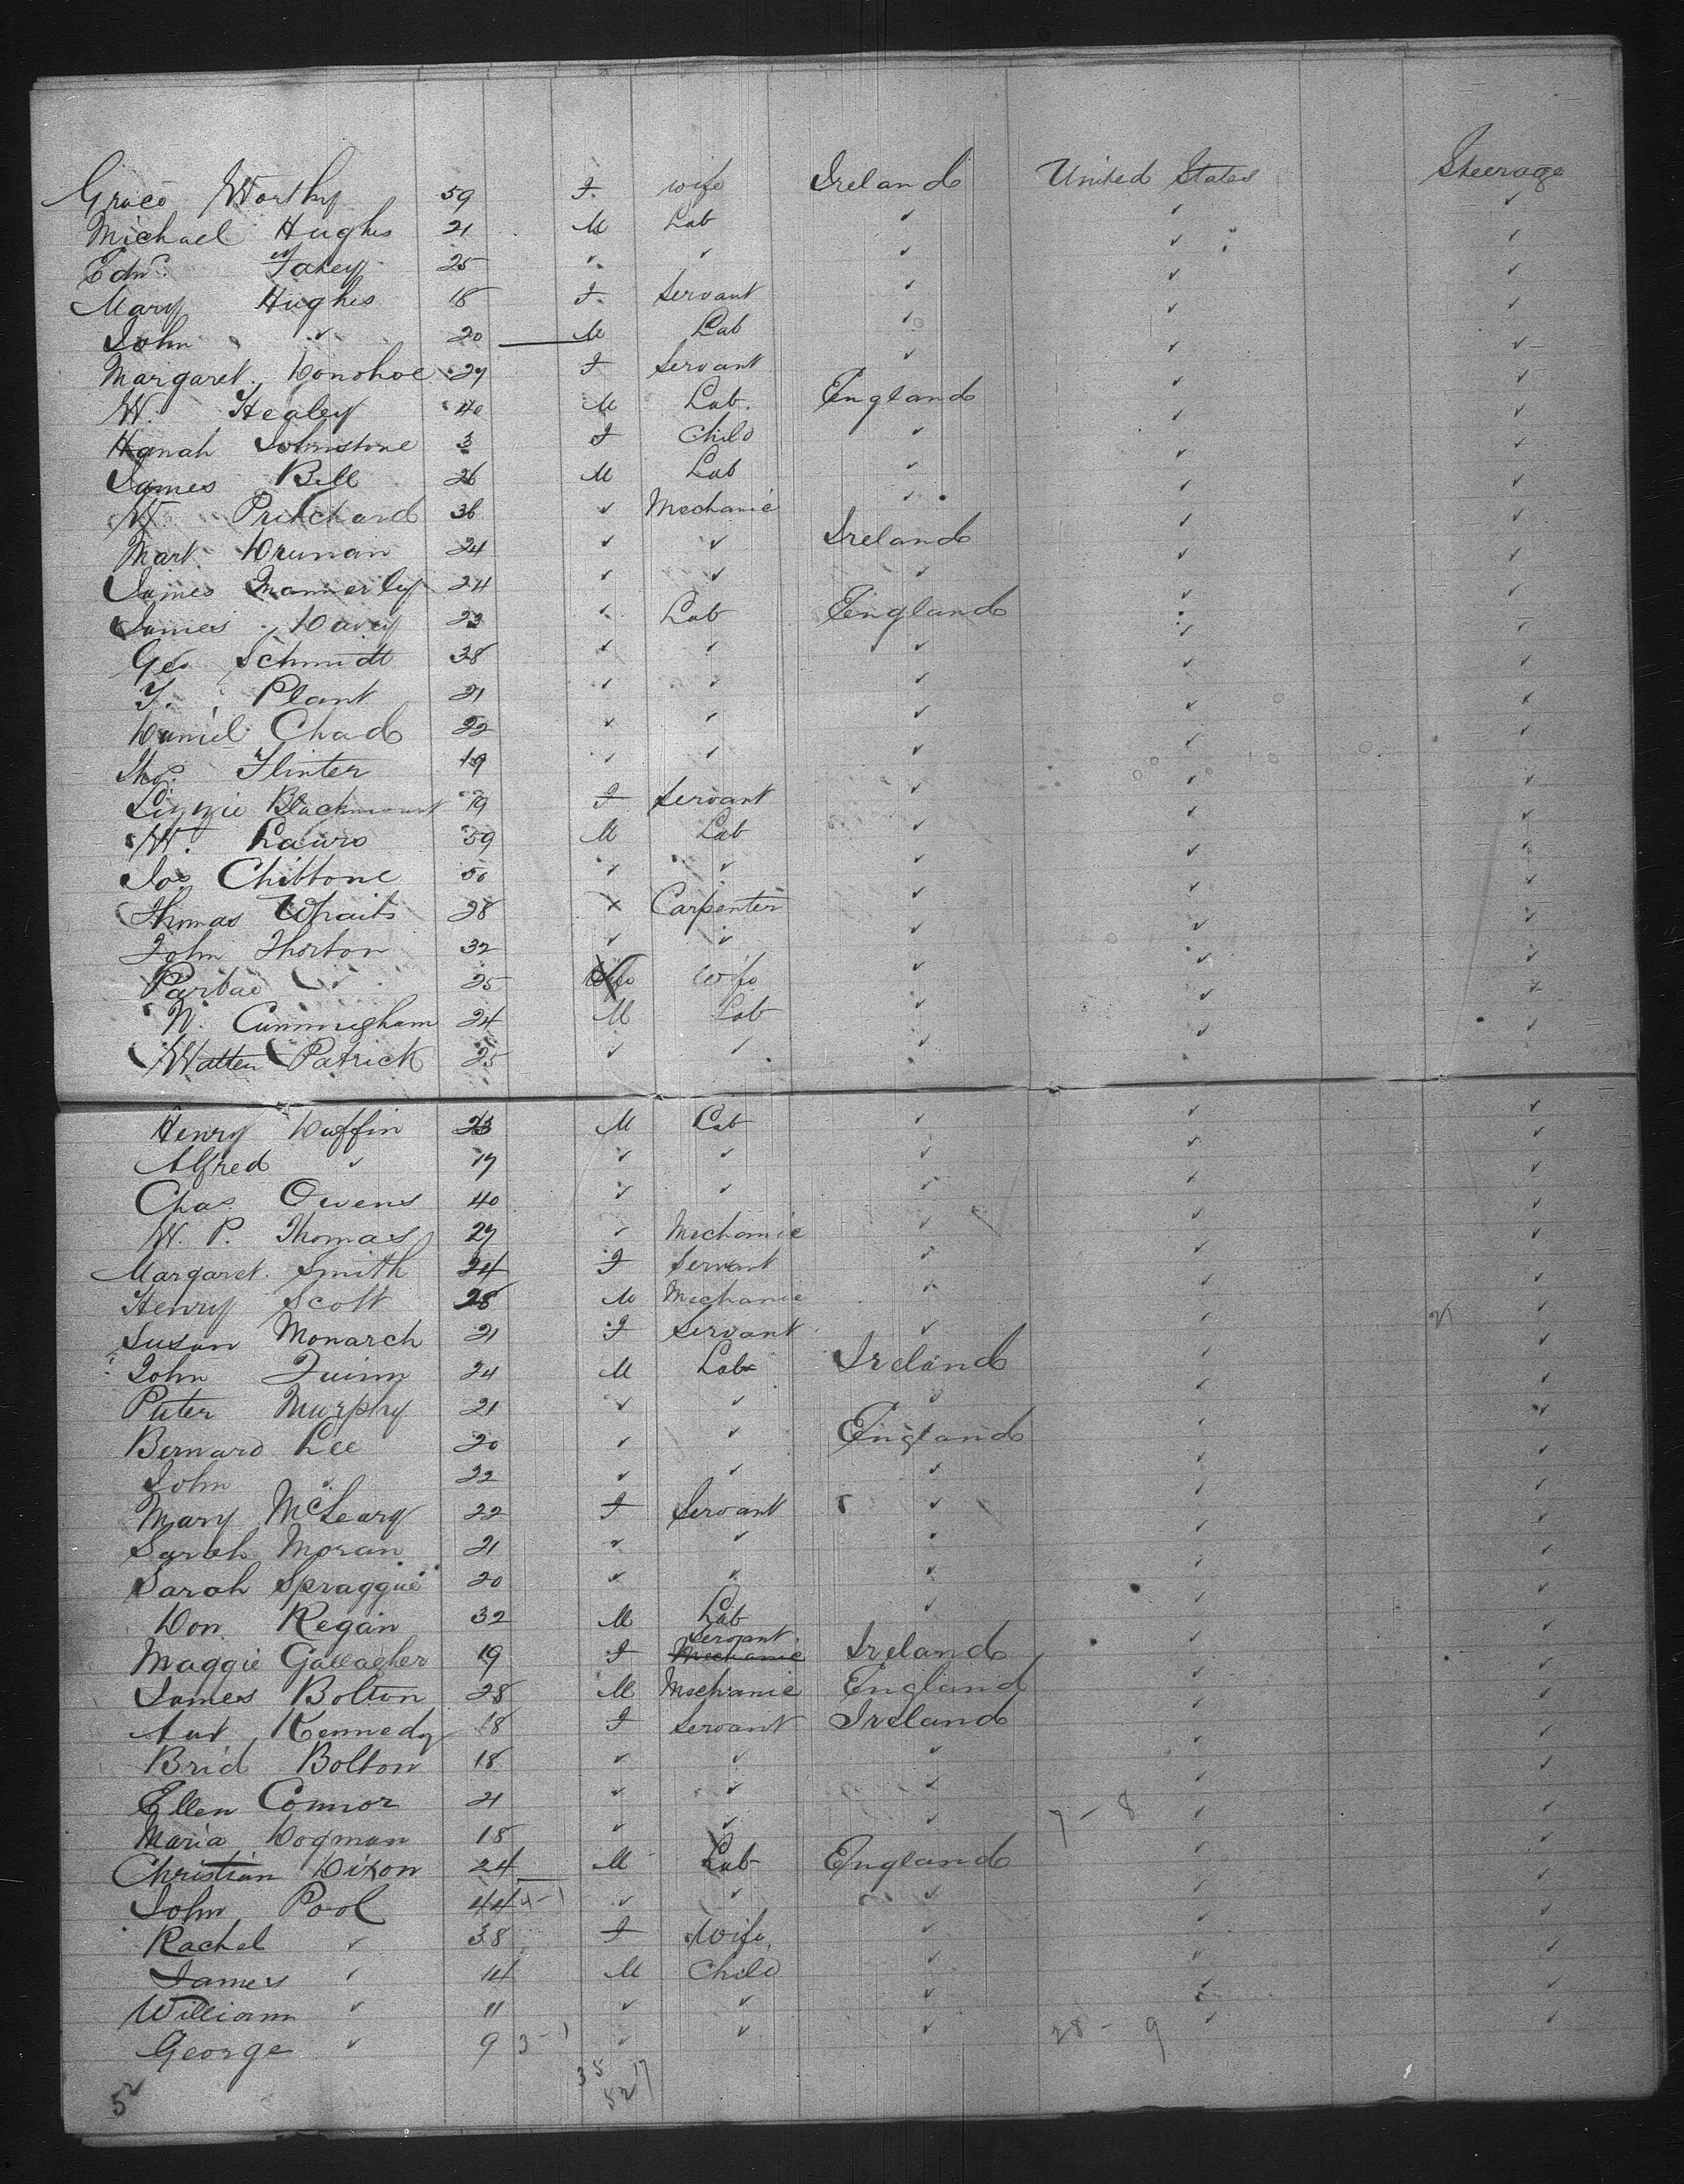 Grace Worthy 59 F. wife Ireland United States Steerage
Michael Hughs 21 M Lab ✓ ✓ ✓
Edwd. Fahey 25 ✓ ✓ ✓ ✓ ✓
Mary Hughes 18 F. Servant ✓ ✓ ✓
John ✓ 20 M Lab ✓ ✓ ✓
Margaret Donohoe 27 F Servant ✓ ✓ ✓
W. Healey 40 M Lab. England ✓ ✓
Hanah Johnstone 3 F Child ✓ ✓ ✓
James Bell 26 M Lab ✓ ✓ ✓
W Pritchard 36 ✓ Mechanic ✓ ✓ ✓
Mart Drunan 24 ✓ ✓ Ireland ✓ ✓
James Mannerly 24 ✓ ✓ ✓ ✓ ✓
James Davey 23 ✓ Lab England ✓ ✓
Geo Schmidt 38 ✓ ✓ ✓ ✓ ✓
T. Plant 21 ✓ ✓ ✓ ✓ ✓
Daniel Chad 22 ✓ ✓ ✓ ✓ ✓
Thos. Flinter 19 ✓ ✓ ✓ ✓ ✓
Lizzie 19 F Servant ✓ ✓ ✓
W. Laws 59 M Lab ✓ ✓ ✓
Jos Chibbone 50 ✓ ✓ ✓ ✓ ✓
Thomas Whaits 28 ✓ Carpenter ✓ ✓ ✓
John Thorton 32 ✓ ✓ ✓ ✓ ✓
✓ 25 Wife ✓ ✓ ✓
W. Cunnigham 24 M Lab ✓ ✓ ✓
Watten Patrick 25 ✓ ✓ ✓ ✓ ✓
Henry Duffin 23 M Lab ✓ ✓ ✓
Alfred ✓ 17 ✓ ✓ ✓ ✓ ✓
Chas. Owens 40 ✓ ✓ ✓ ✓ ✓
W. P. Thomas 27 ✓ Mechanic ✓ ✓ ✓
Margaret Smith 24 F Servant ✓ ✓ ✓
Henry Scott 28 M Mechanic ✓ ✓ ✓
Susan Monarch 21 F Servant ✓ ✓ ✓
John Quinn 24 M Lab Ireland ✓ ✓
Peter Murphy 21 ✓ ✓ ✓ ✓ ✓
Bernard Lee 20 ✓ ✓ England ✓ ✓
John ✓ 22 ✓ ✓ ✓ ✓ ✓
Mary McLeary 22 F Servant ✓ ✓ ✓
Sarah Moran 21 ✓ ✓ ✓ ✓ ✓
Sarah Spraggue 20 ✓ ✓ ✓ ✓ ✓
Don Regan 32 M Lab ✓ ✓ ✓
Servant
Maggie Gallagher 19 F Mechanic Ireland ✓ ✓
James Bolton 28 M Mechanic England ✓ ✓
Ant Kennedy 18 F Servant Ireland ✓ ✓
Brid Bolton 18 ✓ ✓ ✓ ✓ ✓
Ellen Connor 21 ✓ ✓ ✓ ✓ ✓
Maria Dogman 18 ✓ ✓ ✓ 7 - 8 ✓ ✓
Christian Dixon 24 M Lab England ✓ ✓
John Pool 44 4-1 ✓ ✓ ✓ ✓ ✓
Rachel ✓ 38 F Wife ✓ ✓ ✓
James ✓ 14 M Child ✓ ✓ ✓
William ✓ 11 ✓ ✓ ✓ ✓ ✓
George ✓ 9 3-1 ✓ ✓ ✓ 28 - 9 ✓ ✓
52 35 17
52